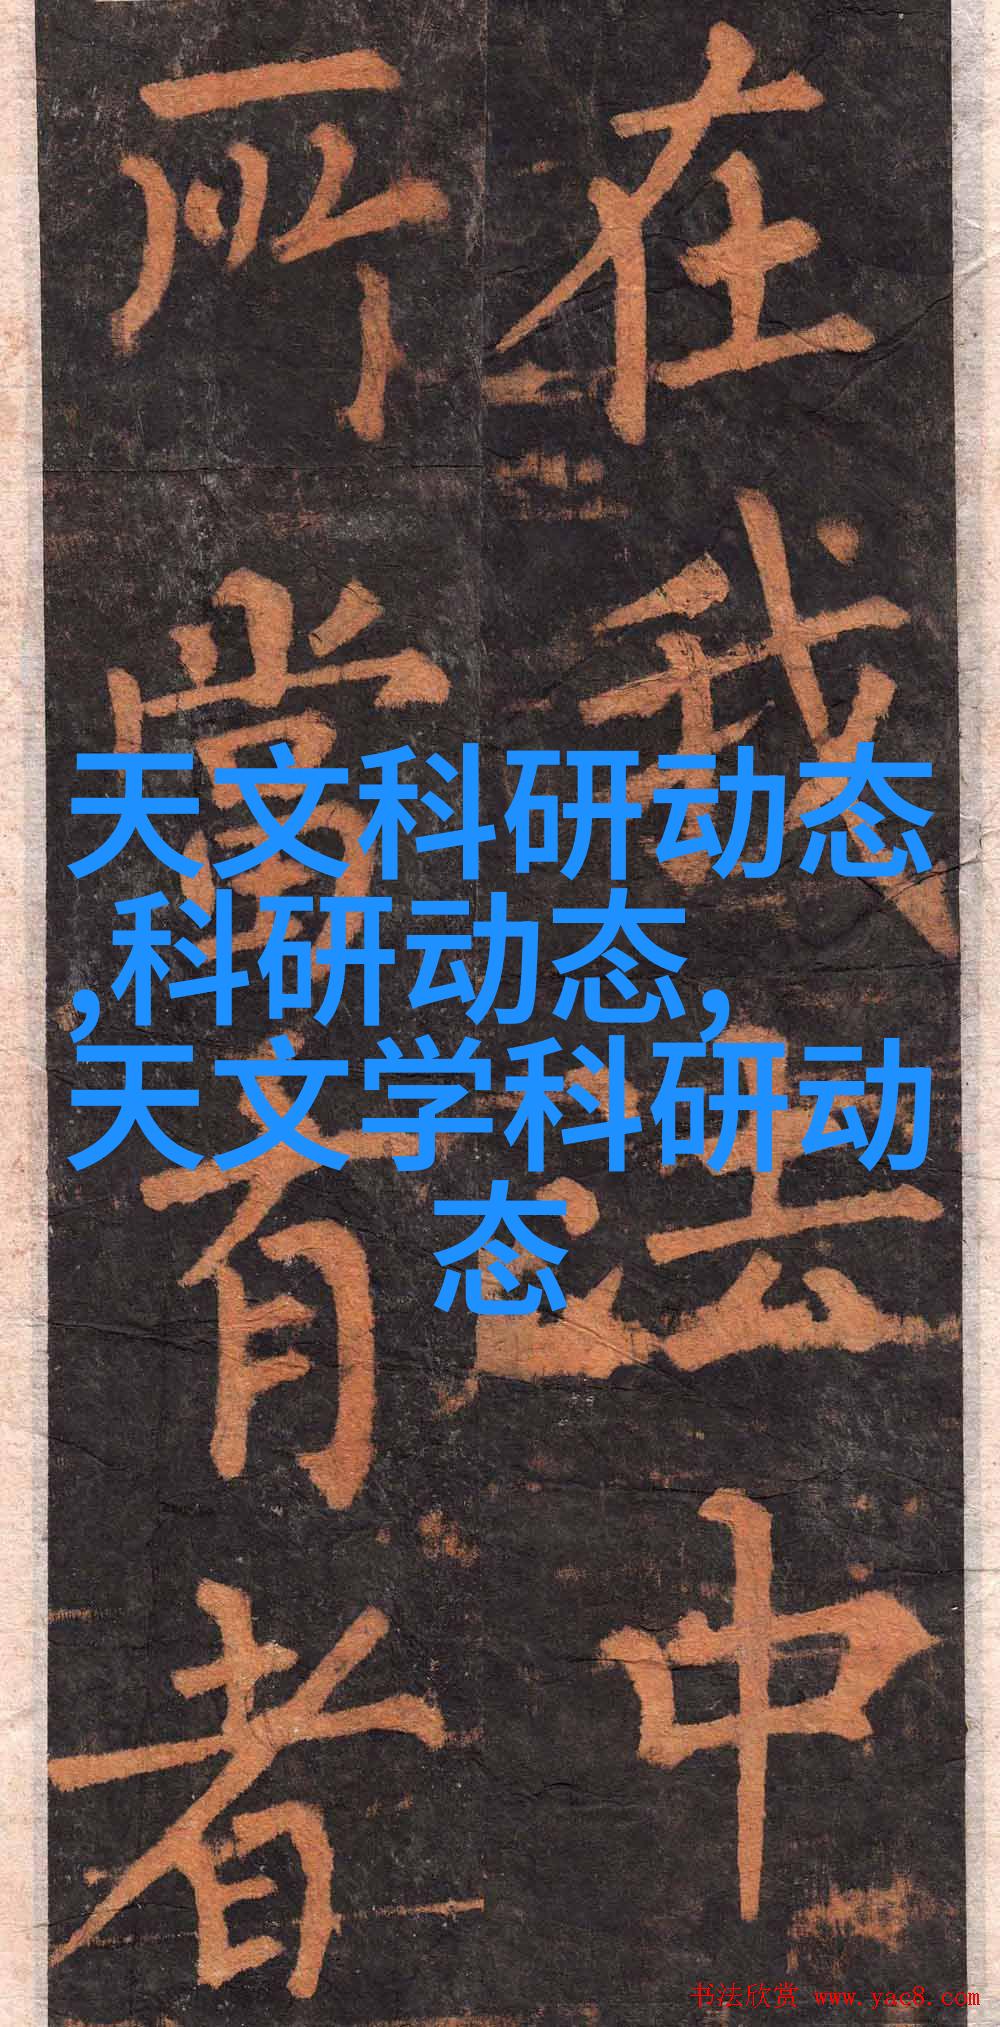 在我法中
所當有者
天文科研动态
,科研动态,
天文学科研动
态
书法欣赏 www.yac8.com